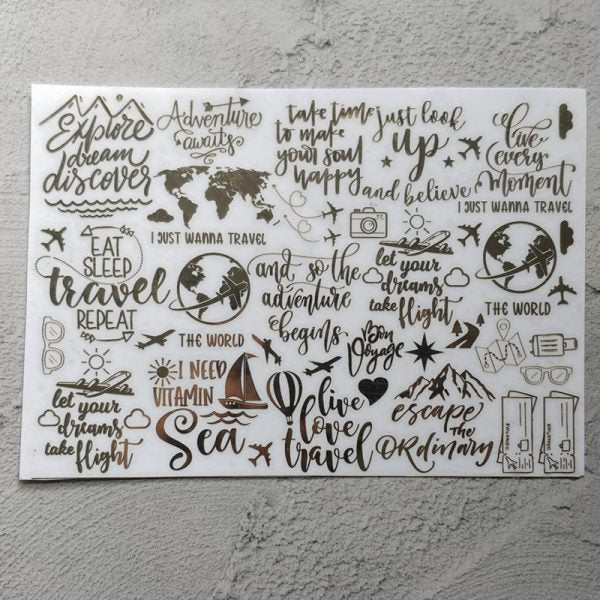 Explore
dream
discover
Adventure
awaits
take time
to make
your soul
happy
just look
up
and believe
live
every
moment
I JUST WANNA TRAVEL
I JUST WANNA TRAVEL
EAT
SLEEP
travel
REPEAT
THE WORLD
and so the
adventure
begins
let your
dreams
take flight
THE WORLD
Bon
Voyage
let your
dreams
take flight
I NEED
VITAMIN
Sea
live
love
travel
escape
the
ORdinary